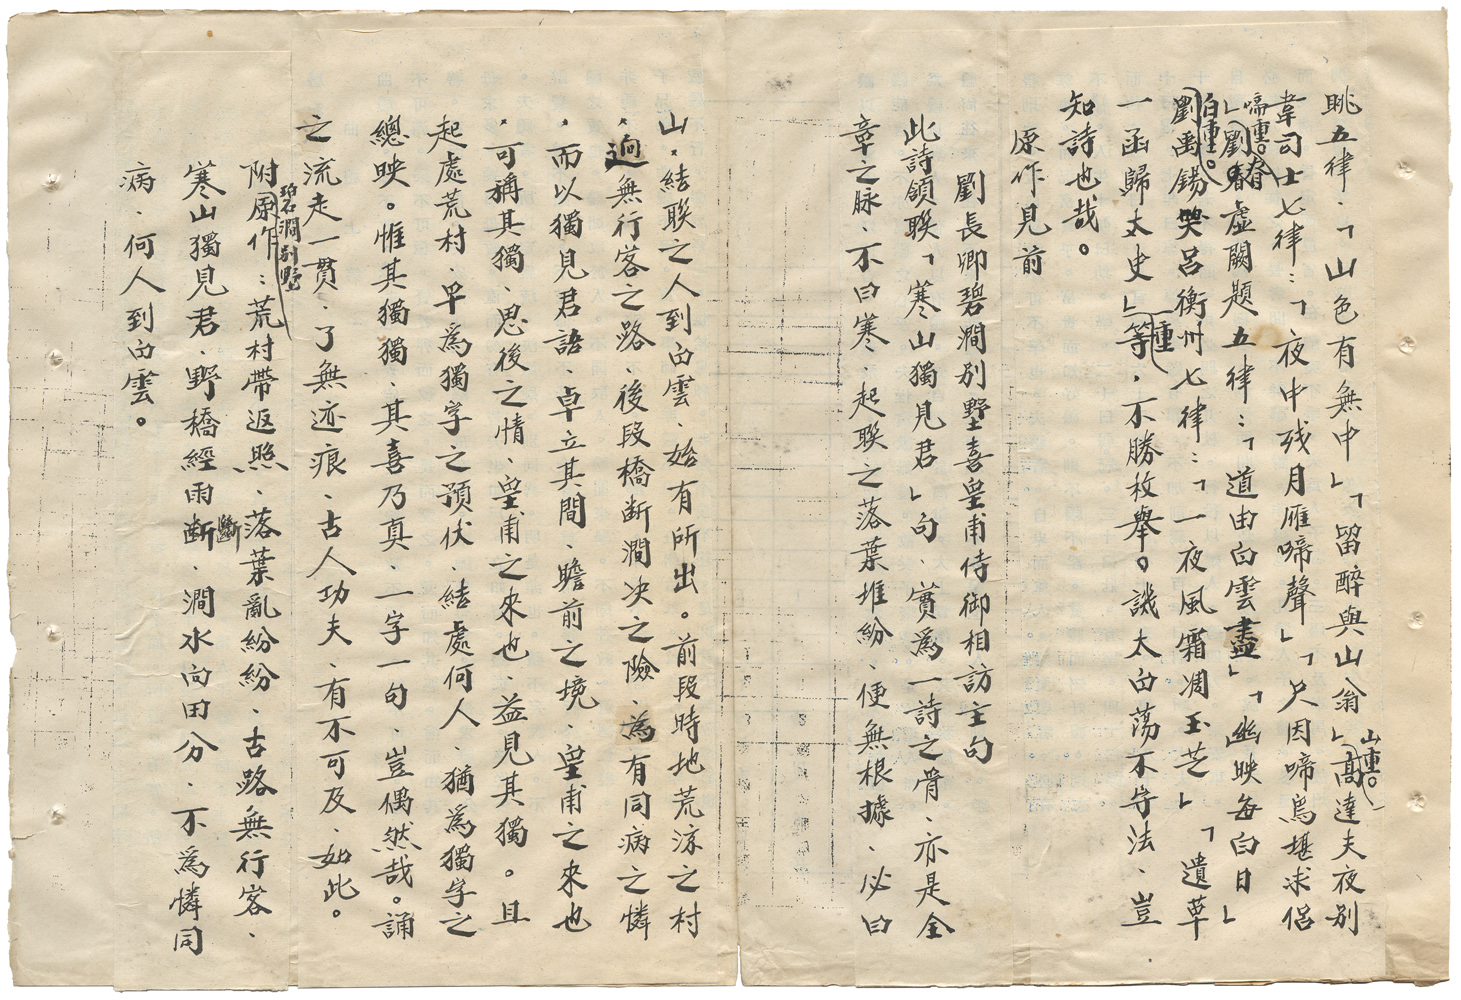 眺五律、「山色有無中」「留醉與山翁」山重。高達夫夜別
韋司士七律：「夜中殘月雁啼聲」「只因啼鳥堪求侶
」啼重。劉眘虛闕題五律：「道由白雲盡」「幽映每白日」
白重。劉禹錫哭呂衡州七律：「一夜風霜凋玉芝」「遺草
一函歸太史」一重等，不勝枚舉。譏太白蕩不守法、豈
知詩也哉。
原作見前
劉長卿碧澗別墅喜皇甫侍御相訪主句
此詩頷聯「寒山獨見君」句、實為一詩之骨、亦是全
章之脉、不曰寒、起聯之落葉堆紛、便無根據、必曰
山、結聯之人到白雲、始有所出。前段時地荒涼之村
、迥無行客之路、後段橋斷澗决之險、為有同病之憐
、而以獨見君語、卓立其間、瞻前之境、皇甫之來也
、可稱其獨、思後之情、皇甫之來也、益見其獨。且
起處荒村、早為獨字之預伏、結處何人、猶為獨字之
總映。惟其獨獨、其喜乃真、一字一句、豈偶然哉。誦
之流走一貫、了無迹痕、古人功夫、有不可及、如此。
附碧澗別墅原作：荒村帶返照、落葉亂紛紛、古路無行客、
寒山獨見君、野橋經雨斷斷、澗水向田分、不為憐同
病、何人到白雲。